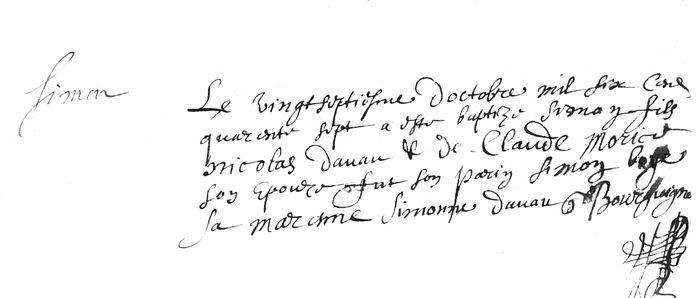 Simon
Le vingtseptiesme doctobre mil six Cent
quarente sept a este baptize Simon fils
nicolas davau & de Claude Morice
son Epouse fut son parin Simon
sa marenne Simonne davau Bourgaigne